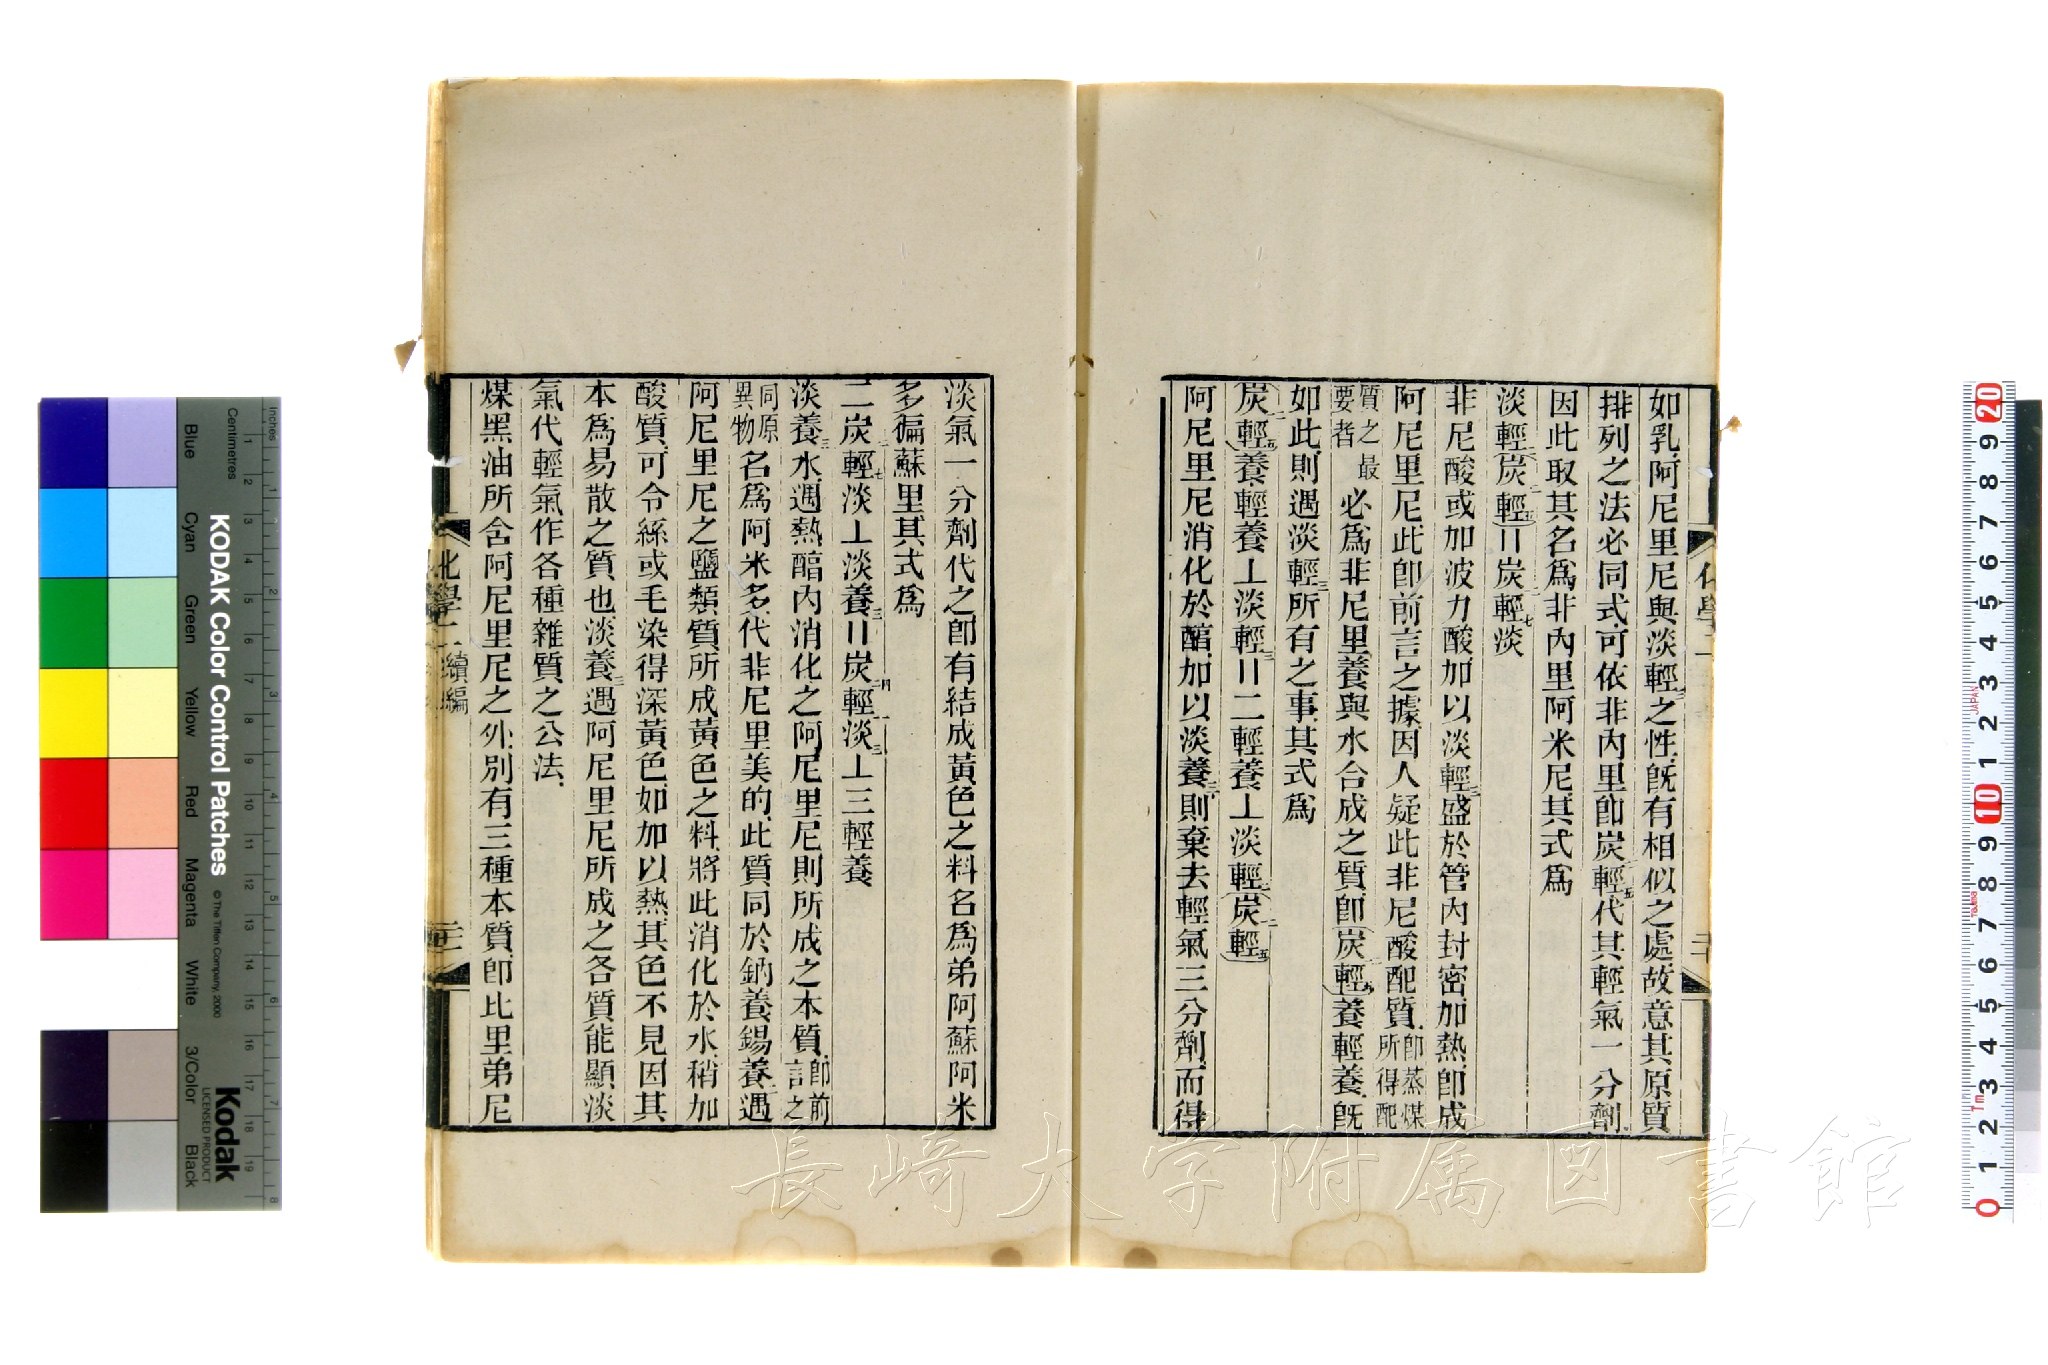 如乳阿尼里尼與淡輕三之性旣有相似之處故意其原質
排列之法必同式可依非內里卽炭輕五代其輕氣一分劑
因此取其名爲非內里阿米尼其式爲
淡輕二(炭輕五)=炭輕七淡
非尼酸或加波力酸加以淡輕三盛於管內封密加熱卽成
阿尼里尼此卽前言之據因人疑此非尼酸配質卽蒸煤所得配
質之最要者必爲非尼里養與水合成之質卽(炭輕五)養輕養旣
如此則遇淡輕三所有之事其式爲
(炭輕五)養輕養⊥淡輕三=二輕養⊥淡輕二(炭輕五)
阿尼里尼消化於醕加以淡養三則棄去輕氣三分劑而得
化學二
二十
淡氣一分劑代之卽有結成黃色之料名爲弟阿蘇阿米
多徧蘇里其式爲
二炭輕七淡⊥淡養三=炭輕淡三⊥三輕養
淡養三水遇熱醕內消化之阿尼里尼則所成之本質卽前言之
同原異物名爲阿米多代非尼里美的此質同於鈉養錫養二遇
阿尼里尼之鹽類質所成黃色之料將此消化於水稍加
酸質可令絲或毛染得深黃色如加以熱其色不見因其
本爲易散之質也淡養三遇阿尼里尼所成之各質能顯淡
氣代輕氣作各種雜質之公法
煤黑油所含阿尼里尼之外別有三種本質卽比里弟尼
化學二 續編
長崎大学附属図書館
KODAK Color Control Patches
© The Tiffen Company, 2000
Kodak
LICENSED PRODUCT
Inches
Centimetres
Blue
Cyan
Green
Yellow
Red
Magenta
White
3/Color
Black
JAPAN